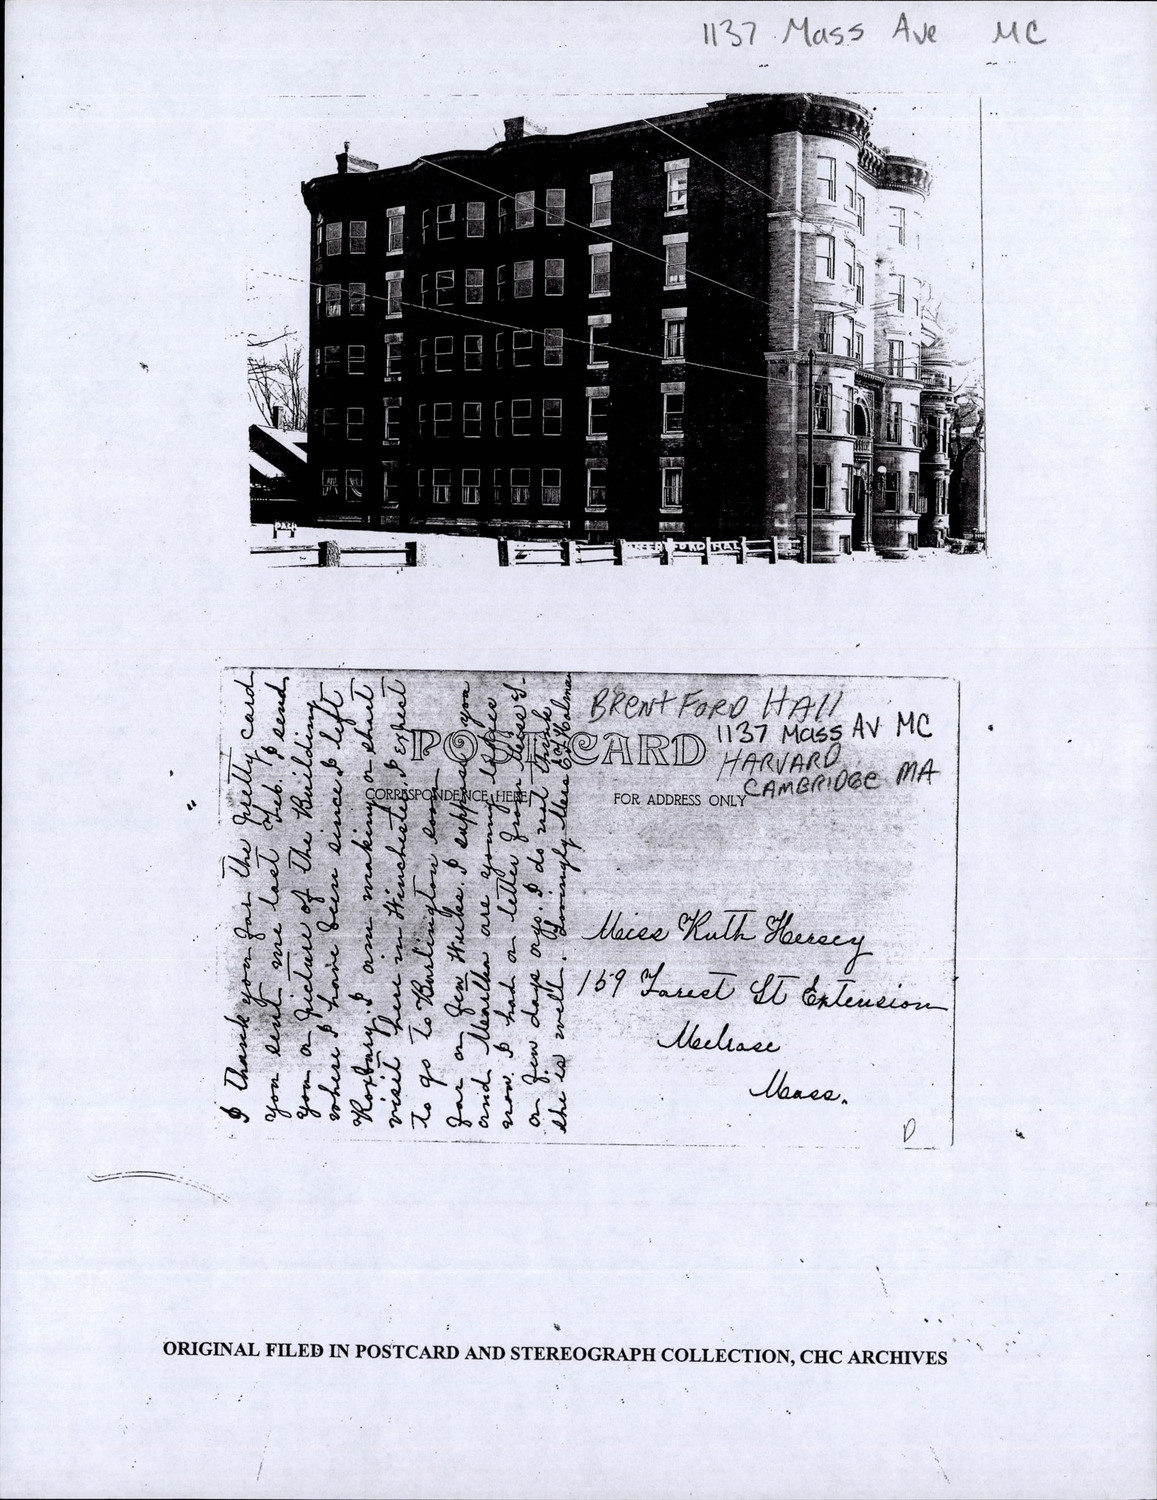 1137 Mass Ave MC
BRENTFORD HALL
BRENTFORD HALL
1137 MASS AV MC
HARVARD
CAMBRIDGE MA
POST CARD
CORRESPONDENCE HERE
FOR ADDRESS ONLY
I thank you for the pretty card
you sent me last Feb. I send
you a picture of the building
where I have been since I left
Roxbury. I am making a short
visit here in Winchester. I expect
to go to Burlington soon
for a few weeks. I suppose you
and Martha are young ladies
now. I had a letter from Miss
a few days ago. I do not think
she is well. Lovingly Miss Holman
Miss Ruth Hersey
159 Forest St Extension
Melrose
Mass.
D
ORIGINAL FILED IN POSTCARD AND STEREOGRAPH COLLECTION, CHC ARCHIVES